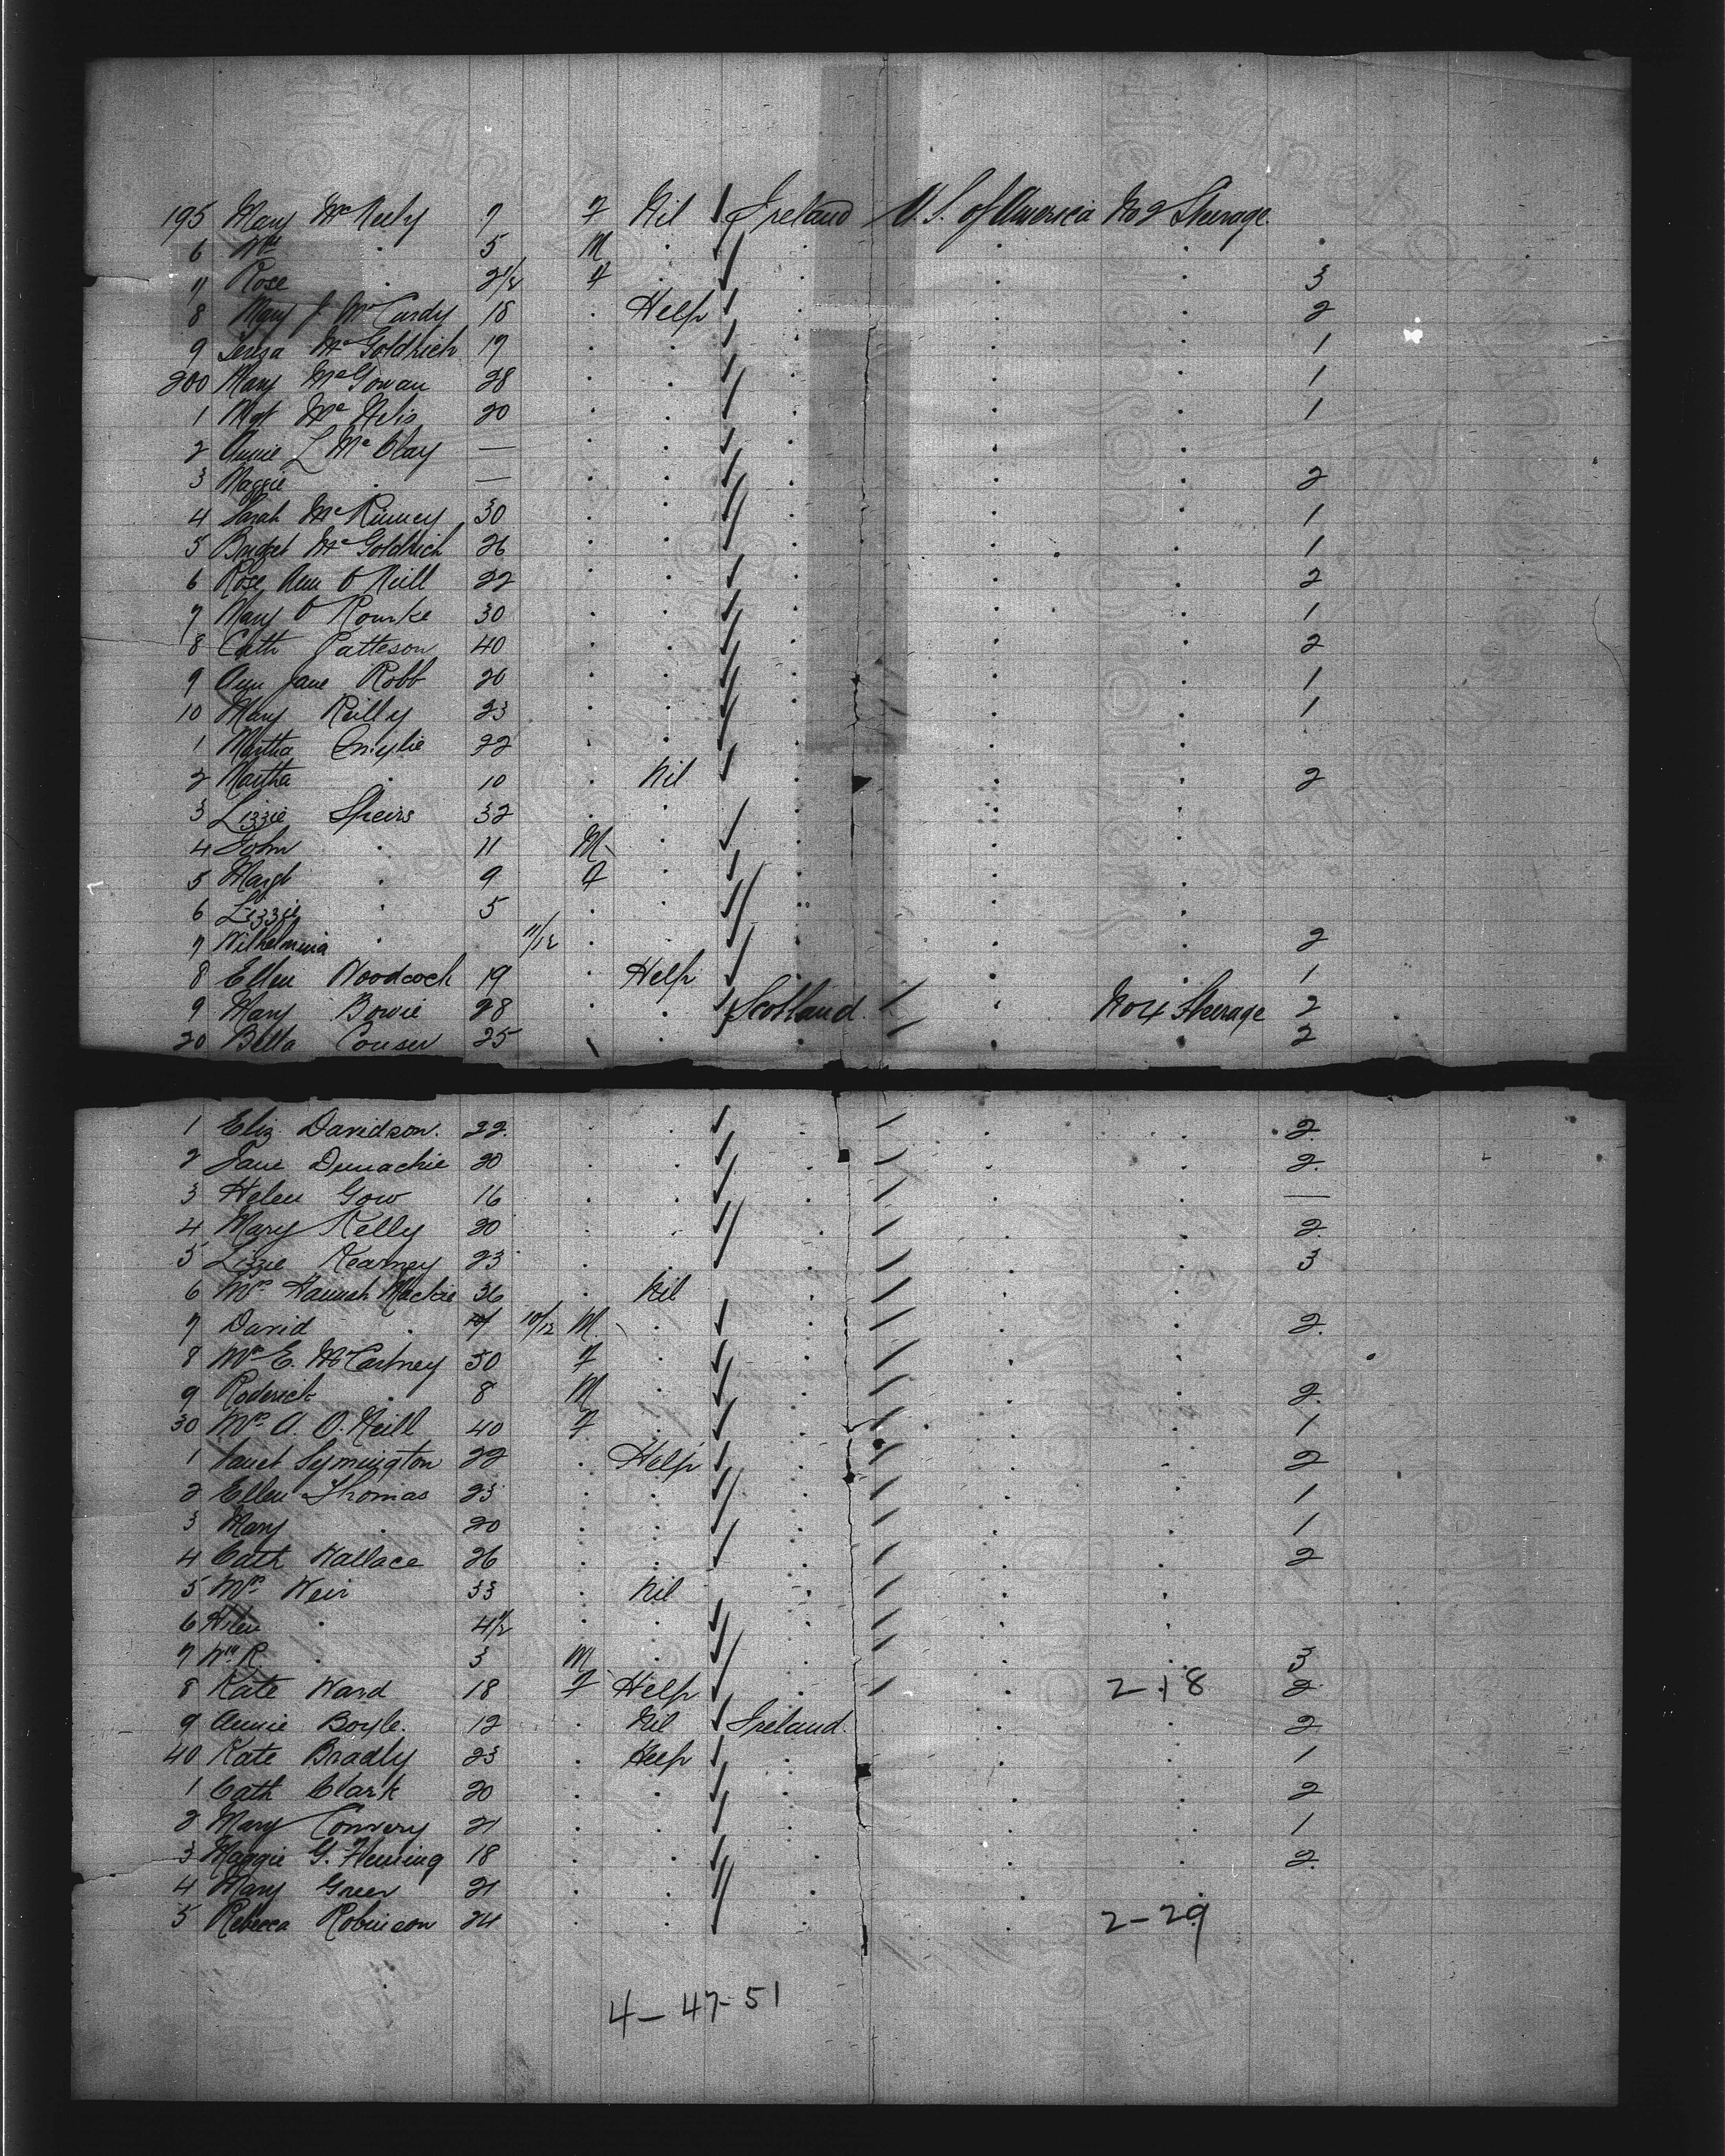 195 Mary McNeely 7 F Nil Ireland U.S. of America No 2 Steerage
6 Wm . 5 M . . . .
7 Rose . 2 1/2 F . . . . 3
8 Mary J McCurdy 18 . Help . . . 2
9 Teresa McGoldrich 19 . . . . . 1
200 Mary McGowan 28 . . . . . 1
1 Mgt McNelis 20 . . . . . 1
2 Annie L McClay — . . . . .
3 Maggie . — . . . . . 2
4 Sarah McKinney 30 . . . . . 1
5 Bridget McGoldrich 26 . . . . . 1
6 Rose Ann O Neill 22 . . . . . 2
7 Mary O Rourke 30 . . . . . 1
8 Cath Patteson 40 . . . . . 2
9 Ann Jane Robb 20 . . . . . 1
10 Mary Reilly 23 . . . . . 1
1 Martha 22 . . . . .
2 Martha . 10 . Nil . . . 2
3 Lizzie Speirs 32 . . . . .
4 John . 11 M . . . .
5 Margt . 9 F . . . .
6 Lizzie . 5 . . . . .
7 Wilhelmina . 11/12 . . . . . 2
8 Ellen Woodcock 19 . Help . . . 1
9 Mary Bowie 28 . . Scotland . No 4 Steerage 2
20 Bella Couser 25 . . . . 2
1 Eliz Davidson. 22 . . . . . 2
2 Jane Dunachie 20 . . . . . 2
3 Helen Gow 16 . . . . . —
4 Mary Kelly 20 . . . . . 2
5 Lizzie Kearney 23 . . . . . 3
6 Mrs Hannah Mackie 36 . Nil . . .
7 David . 10/12 M . . . . 2
8 Mrs E. McCartney 50 F . . . .
9 Roderick . 8 M . . . . 2
30 Mrs A. O. Neill 40 F . . . . 1
1 Janet Symington 22 . Help . . . 2
2 Ellen Thomas 23 . . . . . 1
3 Mary . 20 . . . . . 1
4 Cath Wallace 26 . . . . . 2
5 Mrs Weir 33 . Nil . . .
6 Helen . 4 1/2 . . . . .
7 Wm R. . 3 M . . . . 3
8 Kate Ward 18 F Help . . 2-18 2
9 Annie Boyle. 12 . Nil Ireland . . 2
40 Kate Bradly 23 . Help . . . 1
1 Cath Clark 20 . . . . . 2
2 Mary Convery 21 . . . . . 1
3 Maggie G. Fleming 18 . . . . . 2
4 Mary Green 21 . . . . .
5 Rebecca Robinson 24 . . . . 2-29
4-47-51